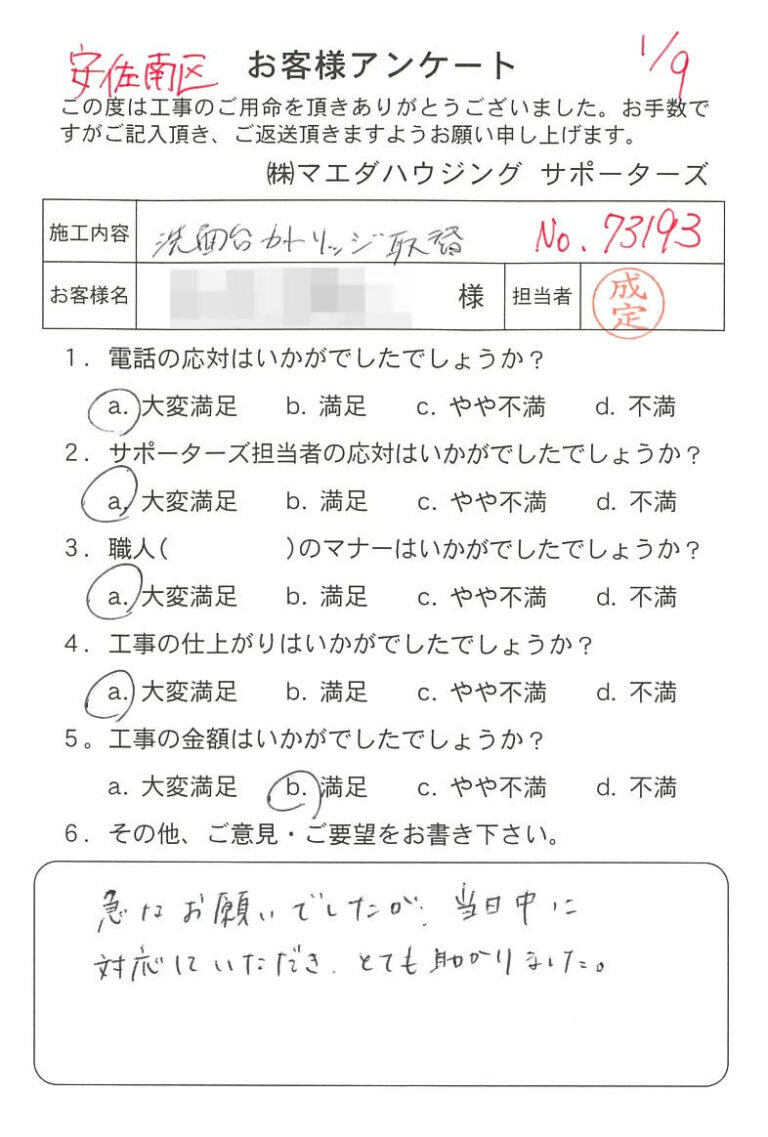 安佐南区 お客様アンケート 1/9
この度は工事のご用命を頂きありがとうございました。お手数で
すがご記入頂き、ご返送頂きますようお願い申し上げます。
㈱マエダハウジング サポーターズ
施工内容 洗面台カートリッジ取替 No. 73193
お客様名 様 担当者 成定
1. 電話の応対はいかがでしたでしょうか？
a. 大変満足 b. 満足 c. やや不満 d. 不満
2. サポーターズ担当者の応対はいかがでしたでしょうか？
a. 大変満足 b. 満足 c. やや不満 d. 不満
3. 職人( )のマナーはいかがでしたでしょうか？
a. 大変満足 b. 満足 c. やや不満 d. 不満
4. 工事の仕上がりはいかがでしたでしょうか？
a. 大変満足 b. 満足 c. やや不満 d. 不満
5。工事の金額はいかがでしたでしょうか？
a. 大変満足 b. 満足 c. やや不満 d. 不満
6. その他、ご意見・ご要望をお書き下さい。
急なお願いでしたが、当日中に
対応していただき、とても助かりました。